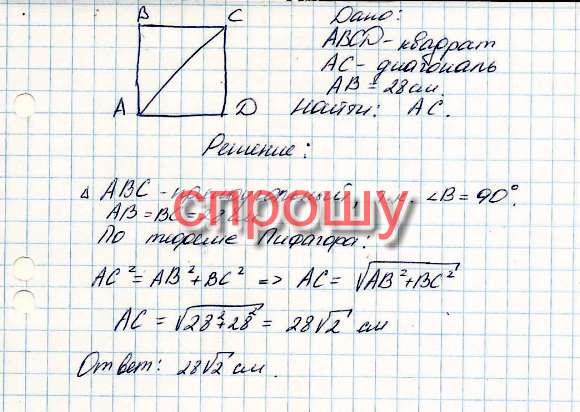 B C
A D
Дано:
ABCD - квадрат
AC - диагональ
AB = 28 см
Найти: AC.
Решение:
Δ ABC - , т.к. ∠B = 90°.
AB = BC = 28 см
По теореме Пифагора:
AC² = AB² + BC² => AC = √AB² + BC²
AC = √28² + 28² = 28√2 см
Ответ: 28√2 см.
спрошу